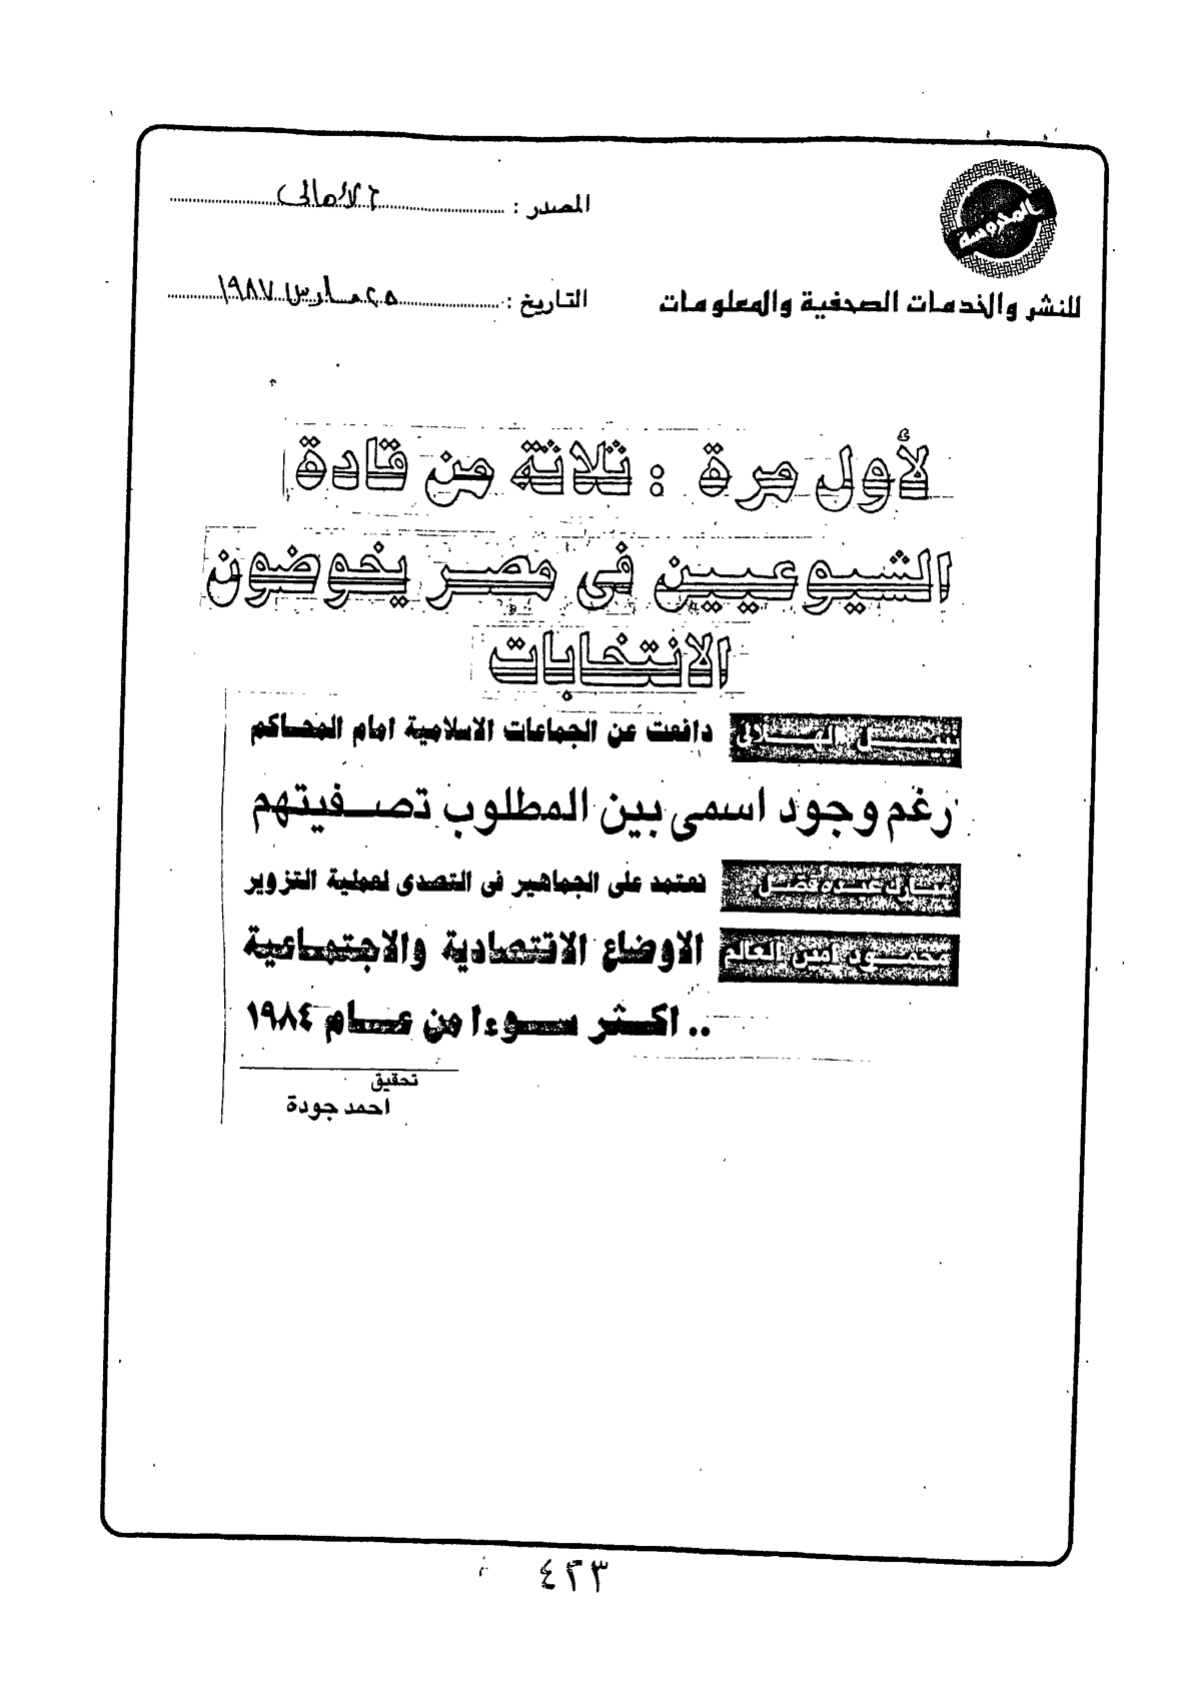 المحروسة
المصدر : الأهالى
للنشر والخدمات الصحفية والمعلومات
التاريخ : ٢٥ مارس ١٩٨٧
لأول مرة : ثلاثة من قادة
الشيوعيين فى مصر يخوضون
الانتخابات
نبيل الهلالى دافعت عن الجماعات الاسلامية امام المحاكم
رغم وجود اسمى بين المطلوب تصفيتهم
مبارك عبده فضل نعتمد على الجماهير فى التصدى لعملية التزوير
محمود امين العالم الاوضاع الاقتصادية والاجتماعية
.. اكثر سوءا من عام ١٩٨٤
تحقيق
احمد جودة
٤٢٣